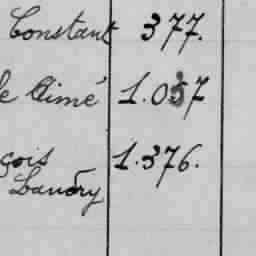 Constant 377.
le Aimé 1.037
çois 1.376.
Landry